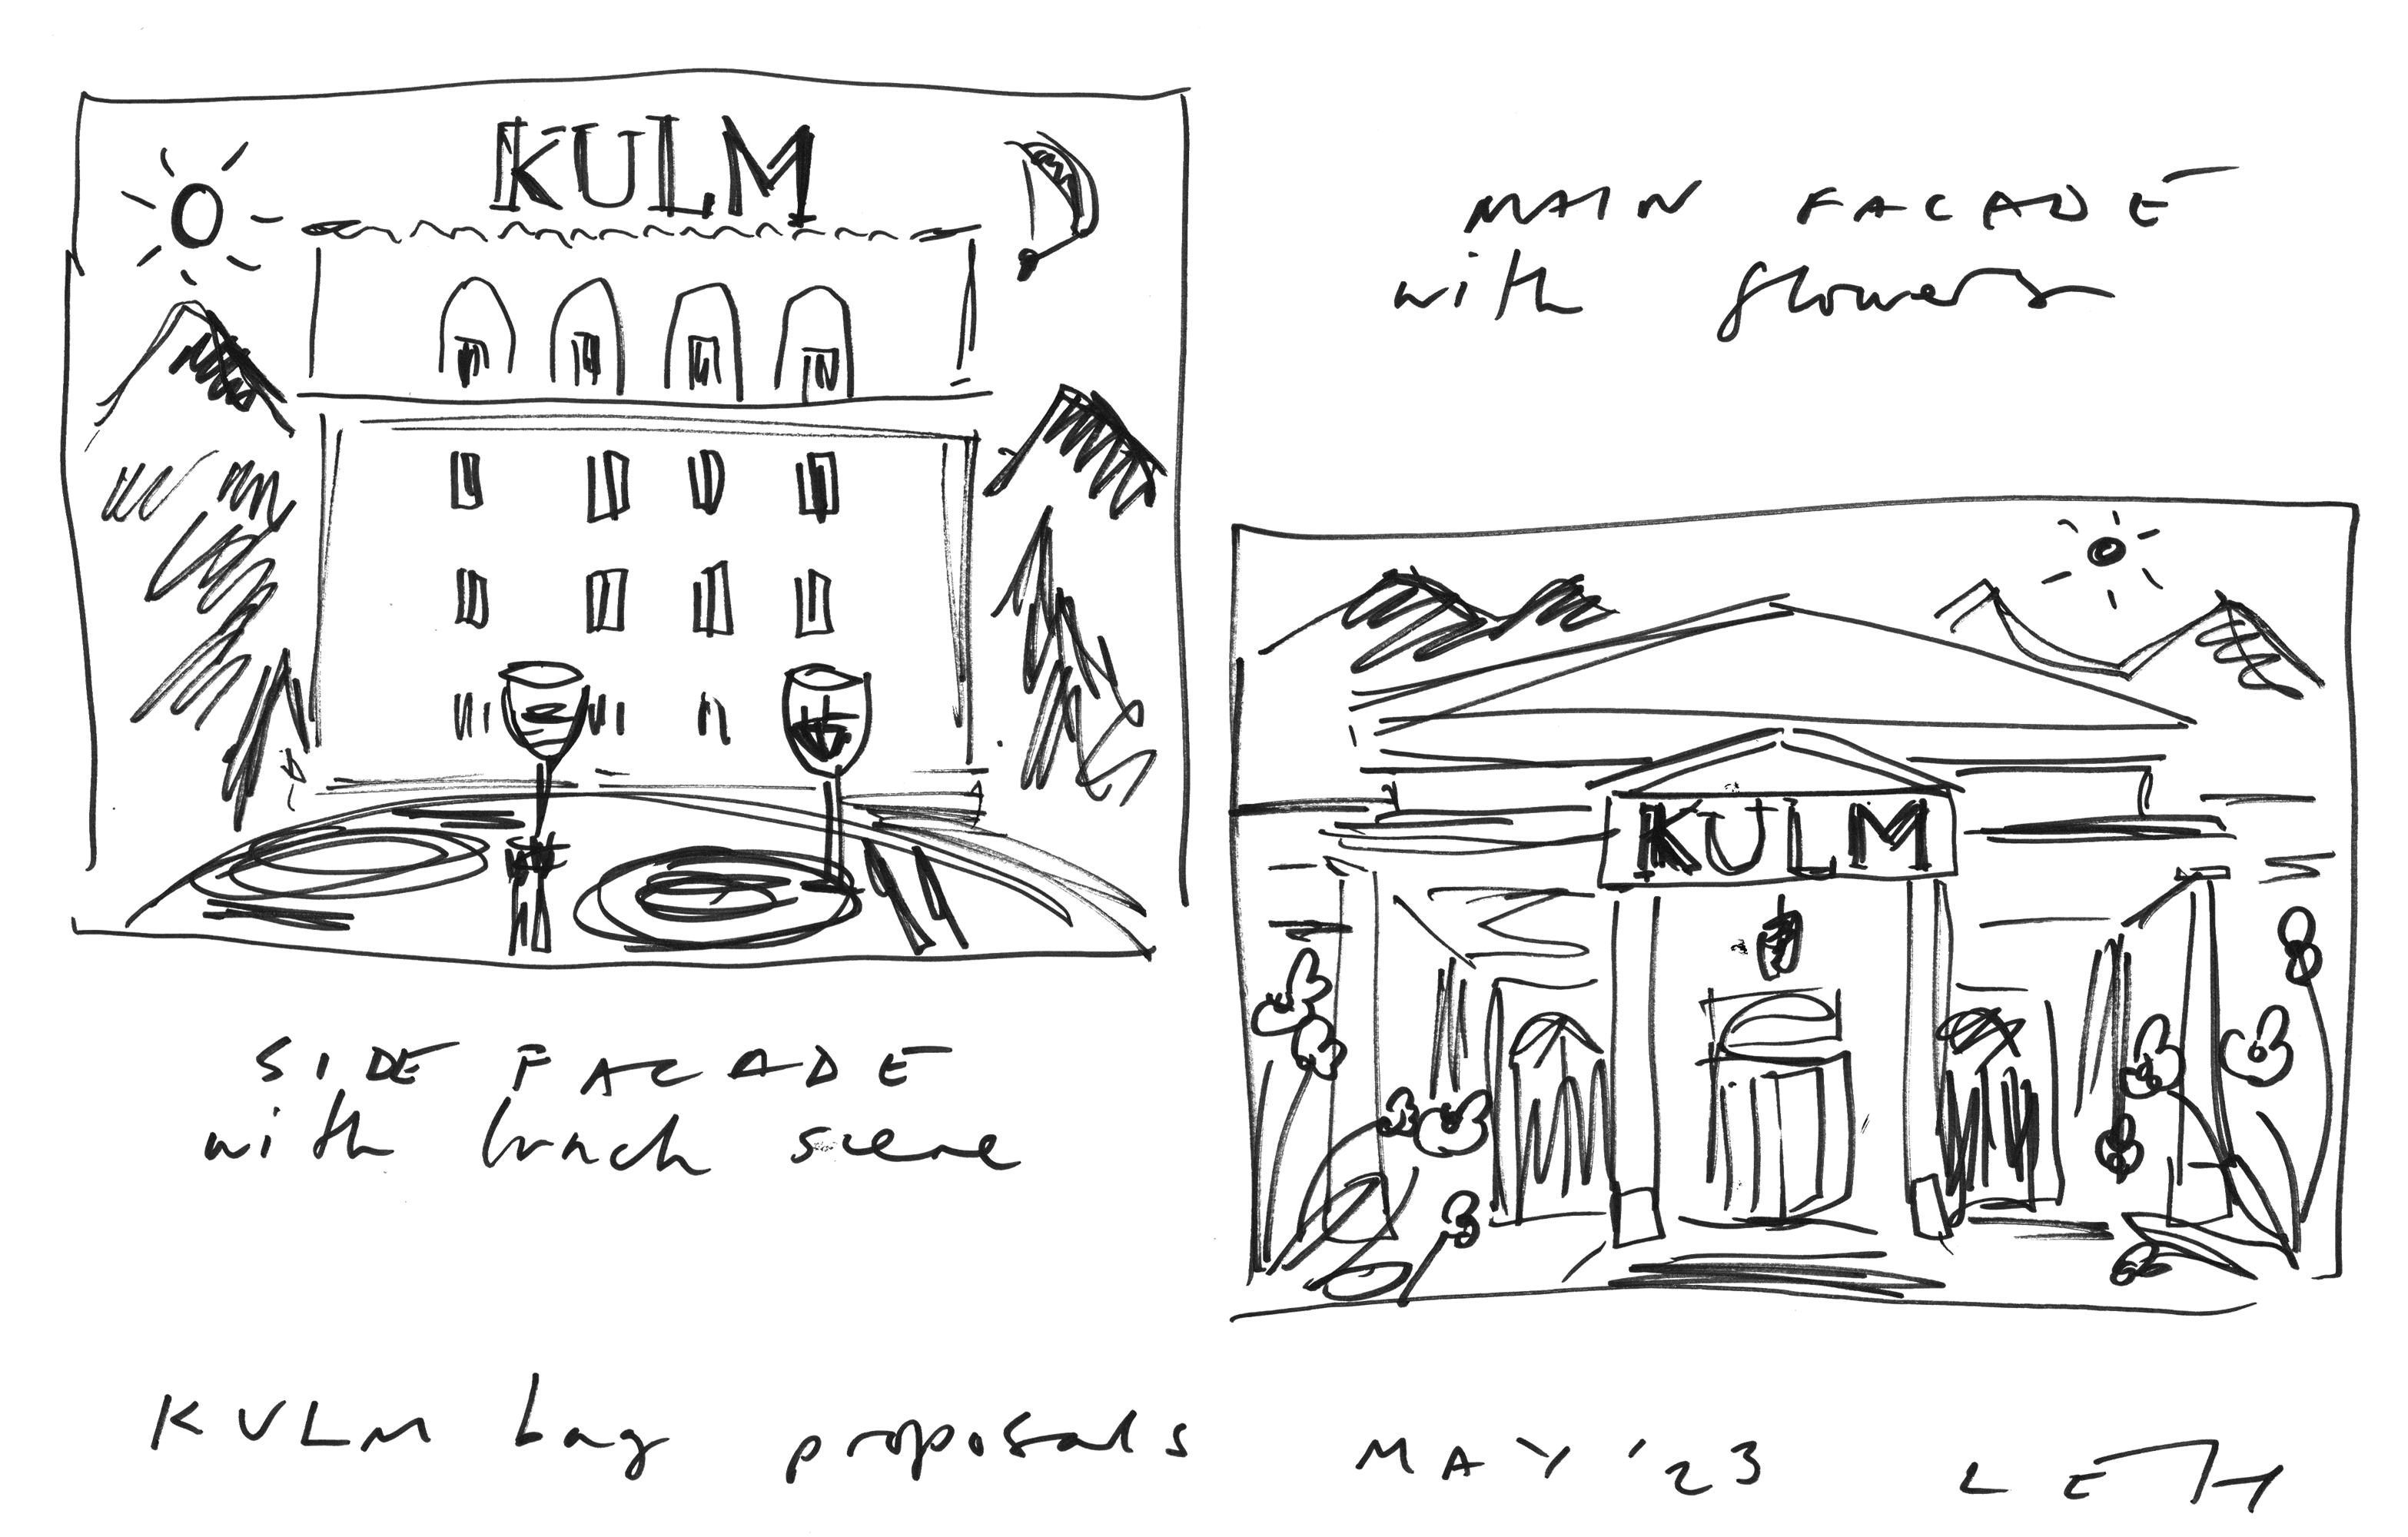 KULM
MAIN FACADE
with flowers
KULM
SIDE FACADE
with lunch scene
KULM bag proposals MAY '23